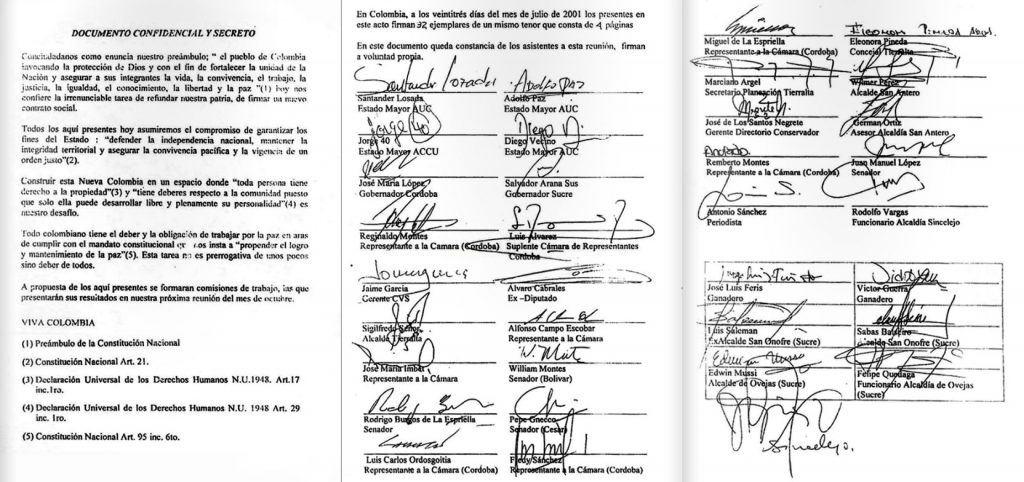 DOCUMENTO CONFIDENCIAL Y SECRETO
Conciudadanos como enuncia nuestro preámbulo; " el pueblo de Colombia
invocando la protección de Dios y con el fin de fortalecer la unidad de la
Nación y asegurar a sus integrantes la vida, la convivencia, el trabajo, la
justicia, la igualdad, el conocimiento, la libertad y la paz "(1) hoy nos
confiere la irrenunciable tarea de refundar nuestra patria, de firmar un nuevo
contrato social.
Todos los aquí presentes hoy asumiremos el compromiso de garantizar los
fines del Estado : "defender la independencia nacional, mantener la
integridad territorial y asegurar la convivencia pacífica y la vigencia de un
orden justo"(2).
Construir esta Nueva Colombia en un espacio donde "toda persona tiene
derecho a la propiedad"(3) y "tiene deberes respecto a la comunidad puesto
que solo ella puede desarrollar libre y plenamente su personalidad"(4) es
nuestro desafío.
Todo colombiano tiene el deber y la obligación de trabajar por la paz en aras
de cumplir con el mandato constitucional nos insta a "propender el logro
y mantenimiento de la paz"(5). Esta tarea no es prerrogativa de unos pocos
sino deber de todos.
A propuesta de los aquí presentes se formaran comisiones de trabajo, las que
presentarán sus resultados en nuestra próxima reunión del mes de octubre.
VIVA COLOMBIA
(1) Preámbulo de la Constitución Nacional
(2) Constitución Nacional Art. 21.
(3) Declaración Universal de los Derechos Humanos N.U.1948. Art.17
inc.1ro.
(4) Declaración Universal de los Derechos Humanos N.U. 1948 Art. 29
inc. 1ro.
(5) Constitución Nacional Art. 95 inc. 6to.
En Colombia, a los veintitrés días del mes de julio de 2001 los presentes en
este acto firman 32 ejemplares de un mismo tenor que consta de 4 páginas
En este documento queda constancia de los asistentes a esta reunión, firman
a voluntad propia.
Santander Lozada Adolfo PAZ
Santander Losada Adolfo Paz
Estado Mayor AUC Estado Mayor AUC
Jorge 40 Diego V.
Jorge 40 Diego Vecino
Estado Mayor ACCU Estado Mayor AUC
José María López Salvador Arana Sus
Gobernador Cordoba Gobernador Sucre
Reginaldo Montes Luis Alvarez
Representante a la Camara (Cordoba) Suplente Cámara de Representantes
Cordoba
Jaime García Alvaro Cabrales
Gerente CVS Ex -Diputado
Sigilfredo Senor Alfonso Campo Escobar
Alcalde Tierralta Representante a la Cámara
W. Montes
José María Imbat William Montes
Representante a la Cámara Senador (Bolivar)
Rodrigo Burgos de La Espriella Pepe Gnecco
Senador Senador (Cesar)
Luis Carlos Ordosgoitia Fredy Sánchez
Representante a la Cámara (Cordoba) Representante a la Cámara (Cordoba)
ELEONORA PINEDA
Miguel de La Espriella Eleonora Pineda
Representante a la Cámara (Cordoba) Concejal Tierralta
Marciano Argel Wilmer Pérez
Secretario Planeación Tierralta Alcalde San Antero
José de Los Santos Negrete German Ortiz
Gerente Directorio Conservador Asesor Alcaldía San Antero
Remberto Montes Juan Manuel López
Representante a la Cámara (Cordoba) Senador
Antonio Sánchez Rodolfo Vargas
Periodista Funcionario Alcaldía Sincelejo
José Luis Feris Victor Guerra
Ganadero Ganadero
Luis Saleman Sabas
ExAlcalde San Onofre (Sucre) Alcalde San Onofre (Sucre)
Edwin Mussi
Edwin Mussi Felipe
Alcalde de Ovejas (Sucre) Funcionario Alcaldía de Ovejas
(Sucre)
Sincelejo.